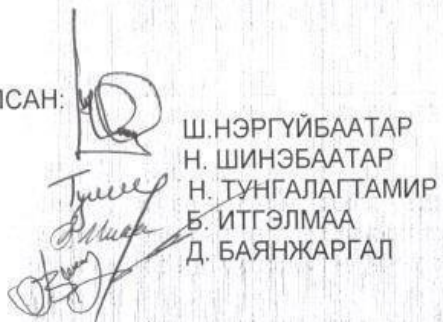 Ш.НЭРГҮЙБААТАР
Н. ШИНЭБААТАР
Н. ТУНГАЛАГТАМИР
Б. ИТГЭЛМАА
Д. БАЯНЖАРГАЛ